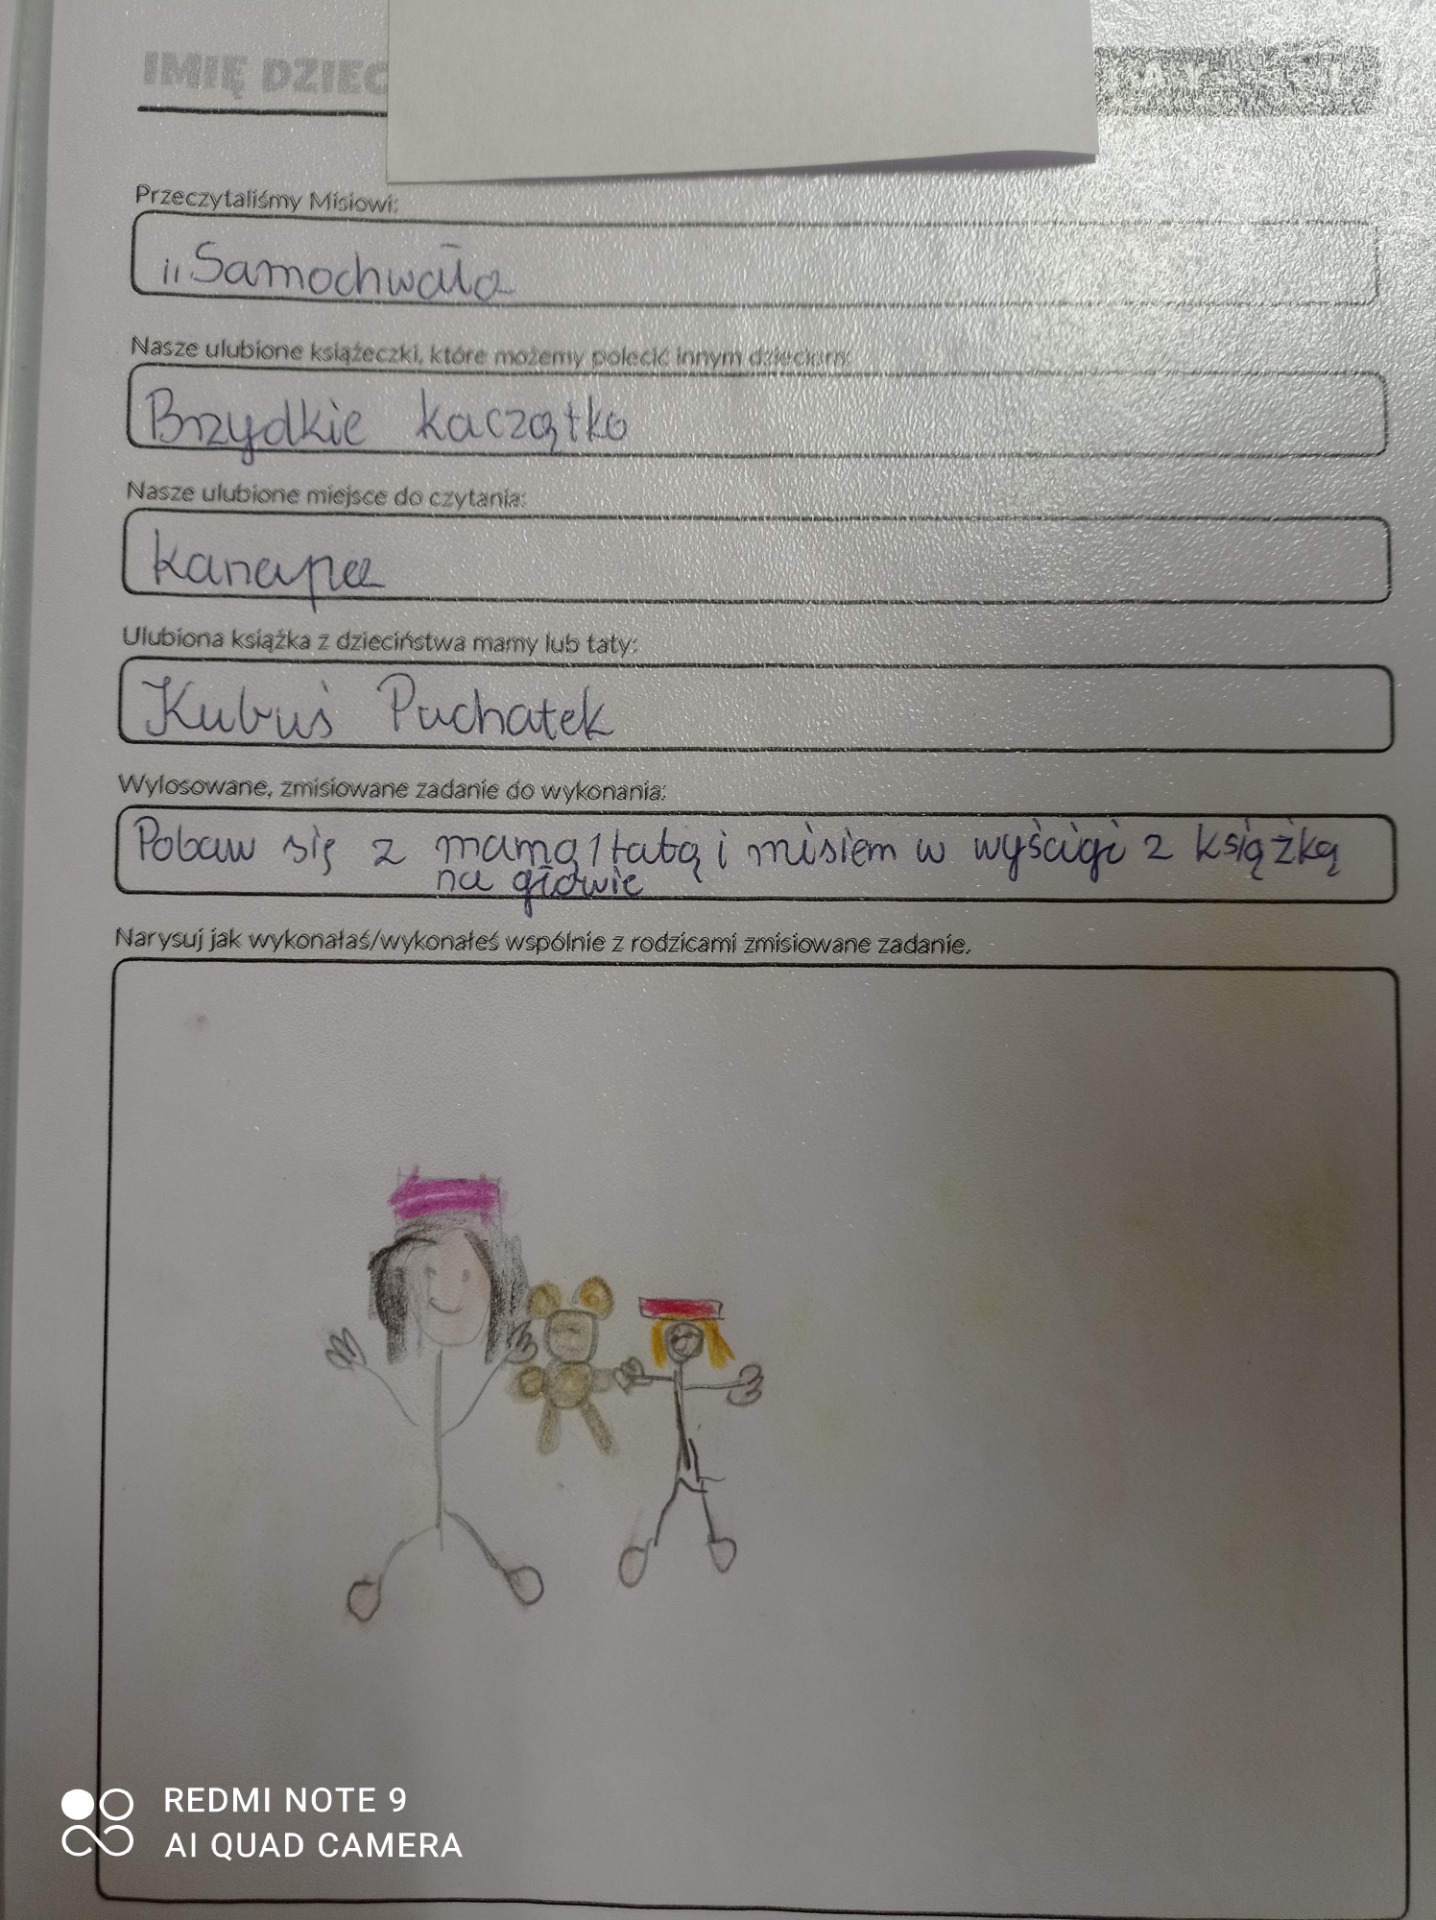 IMIĘ DZIEC
Przeczytaliśmy Misiowi:
„Samochwała
Nasze ulubione książeczki, które możemy polecić innym dzieciom:
Brzydkie kaczątko
Nasze ulubione miejsce do czytania:
kanapa
Ulubiona książka z dzieciństwa mamy lub taty:
Kubuś Puchatek
Wylosowane, zmisiowane zadanie do wykonania:
Pobaw się z mamą/tatą i misiem w wyścigi z książką
na głowie
Narysuj jak wykonałaś/wykonałeś wspólnie z rodzicami zmisiowane zadanie.
REDMI NOTE 9
AI QUAD CAMERA